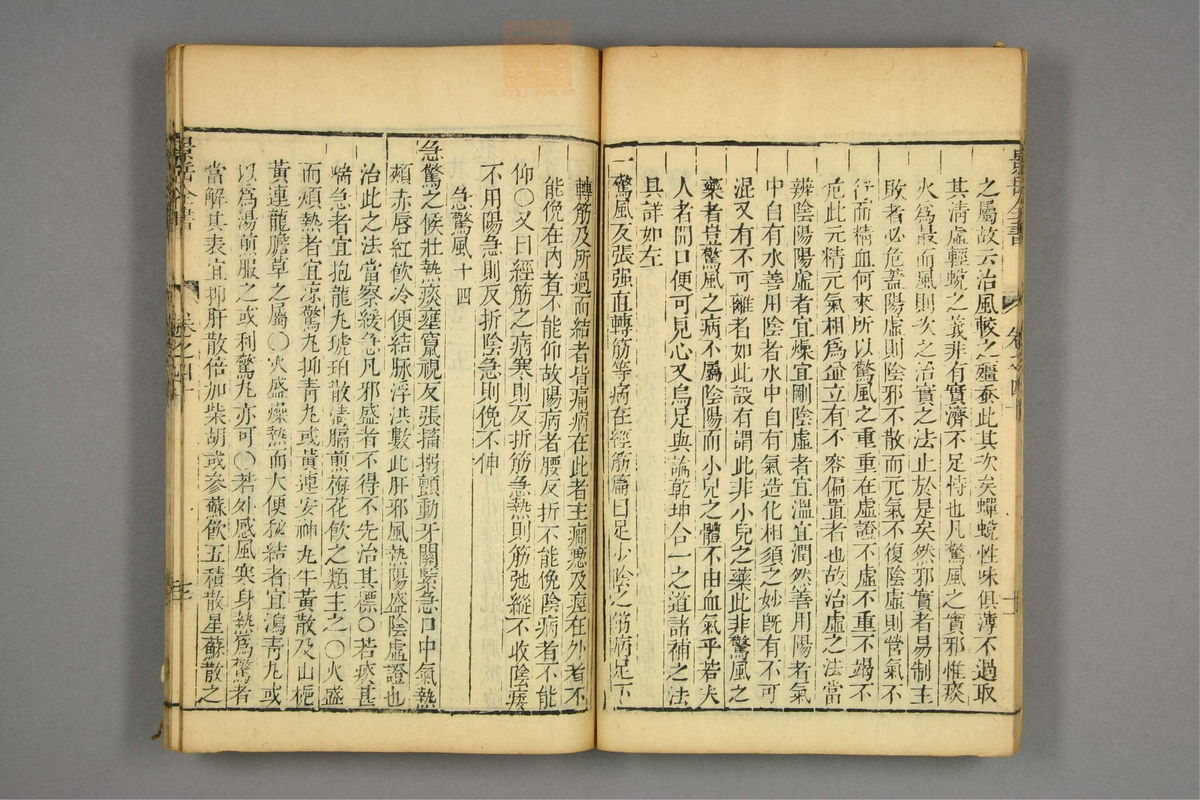 之屬故云治風較之殭蠶此其次矣蟬蛻性味俱薄不過取
其清虛輕蛻之義非有實濟不足恃也凡驚風之實邪惟痰
火爲最而風則次之治實之法止於是矣然邪實者易制主
敗者必危蓋陽虛則陰邪不散而元氣不復陰虛則營氣不
行而精血何來所以驚風之重重在虛證不虛不重不竭不
危此元精元氣相爲並立有不容偏置者也故治虛之法當
辨陰陽陽虛者宜燥宜剛陰虛者宜溫宜潤然善用陽者氣
中自有水善用陰者水中自有氣造化相須之妙旣有不可
混又有不可離者如此設有謂此非小兒之藥此非驚風之
藥者豈驚風之病不屬陰陽而小兒之體不由血氣乎若夫
人者開口便可見心又烏足與論乾坤合一之道諸補之法
具詳如左
一驚風反張强直轉筋等病在經筋篇曰足少陰之筋病足下
轉筋及所過而結者皆痛病在此者主癎瘛及痙在外者不
能俛在內者不能仰故陽病者腰反折不能俛陰病者不能
仰〇又曰經筋之病寒則反折筋急熱則筋弛縱不收陰痿
不用陽急則反折陰急則俛不伸
急驚風十四
急驚之候壯熱痰壅竄視反張搐搦顫動牙關緊急口中氣熱
頰赤唇紅飲冷便結脉浮洪數此肝邪風熱陽盛陰虛證也
治此之法當察緩急凡邪盛者不得不先治其標〇若痰甚
喘急者宜抱龍丸琥珀散清膈煎梅花飲之類主之〇火盛
而煩熱者宜涼驚丸抑青丸或黃連安神丸牛黃散及山梔
黃連龍膽草之屬〇火盛燥熱而大便秘結者宜瀉青丸或
以爲湯煎服之或利驚丸亦可〇若外感風寒身熱爲驚者
當解其表宜抑肝散倍加柴胡或參蘇飲五積散星蘇散之
景岳全書
卷之四十